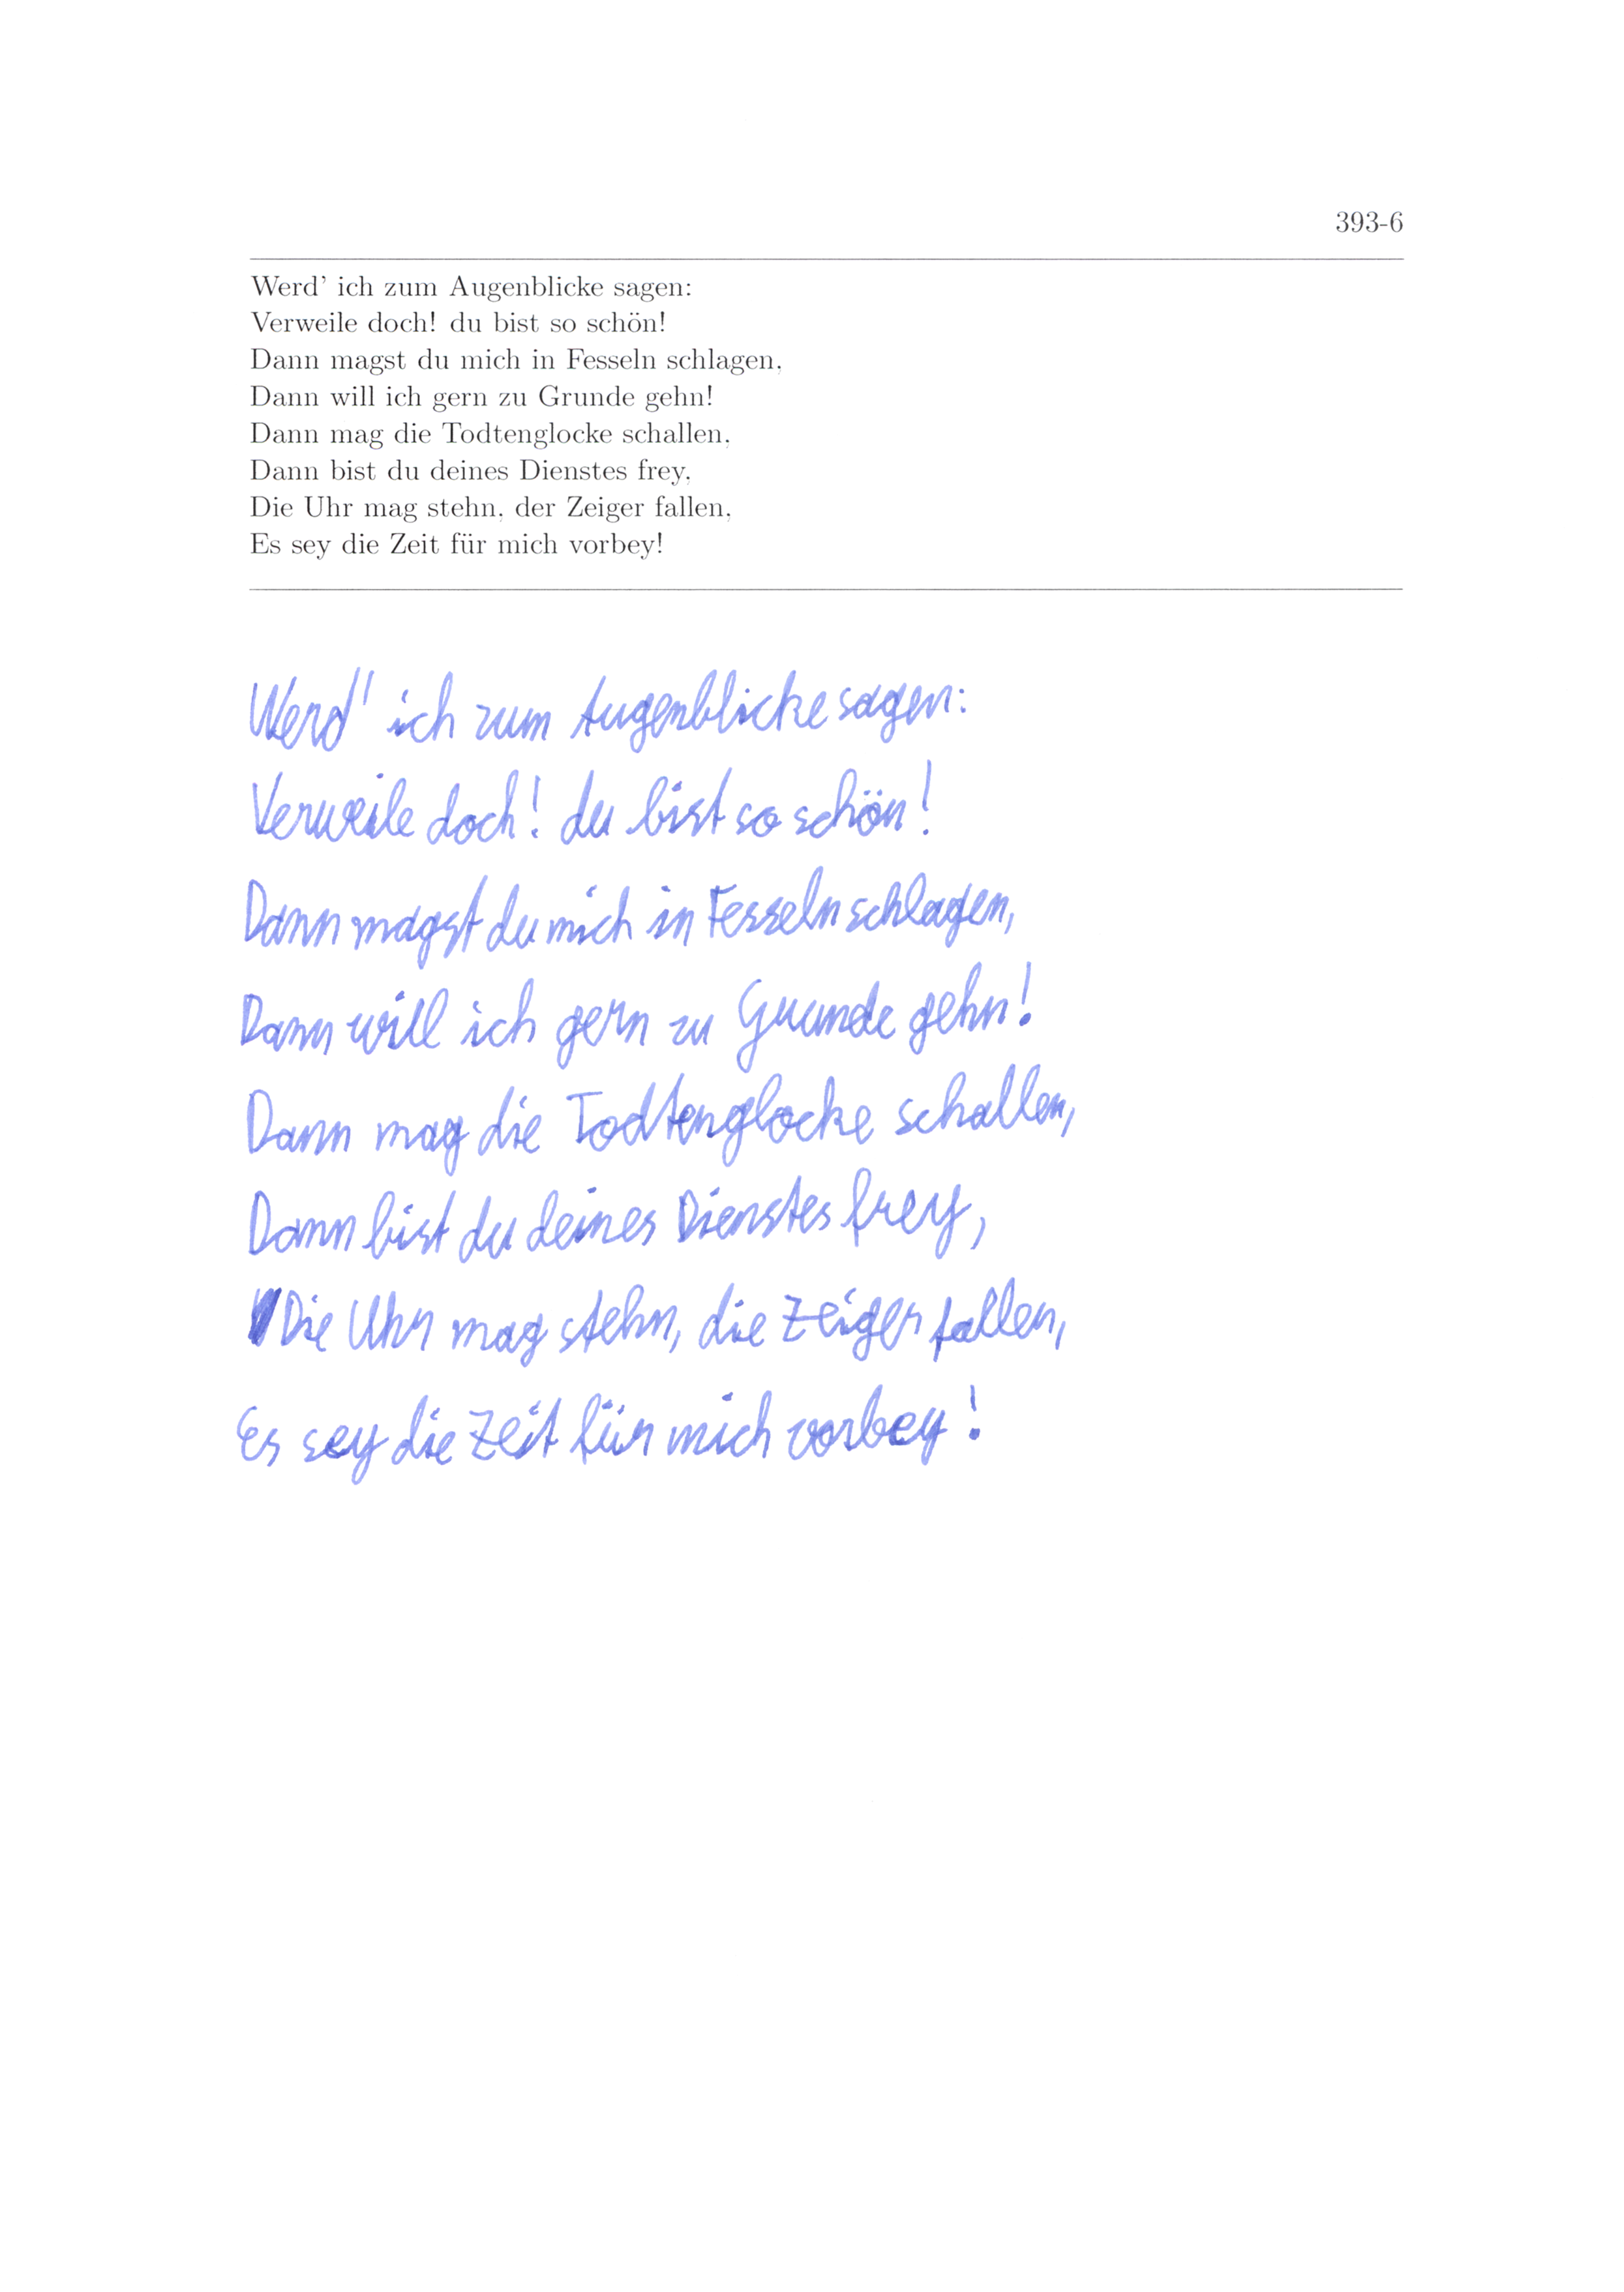 393-6
Werd’ ich zum Augenblicke sagen:
Verweile doch! du bist so schön!
Dann magst du mich in Fesseln schlagen,
Dann will ich gern zu Grunde gehn!
Dann mag die Todtenglocke schallen,
Dann bist du deines Dienstes frey,
Die Uhr mag stehn, der Zeiger fallen,
Es sey die Zeit für mich vorbey!
Werd' ich zum Augenblicke sagen:
Verweile doch! du bist so schön!
Dann magst du mich in Fesseln schlagen,
Dann will ich gern zu Grunde gehn!
Dann mag die Todtenglocke schallen,
Dann bist du deines Dienstes frey,
Die Uhr mag stehn, die Zeiger fallen,
Es sey die Zeit für mich vorbey!